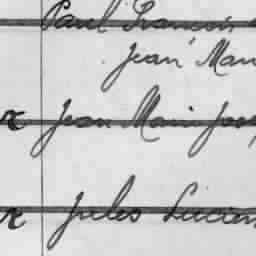 Paul Francois
Jean Mari
x Jean Marie Jose
x Jules Lucien